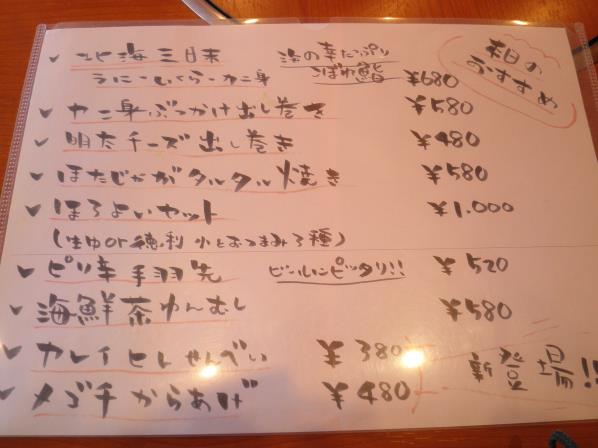 本日のおすすめ
北海三日末 海の幸たっぷりこぼれ鮨
うに・いくら・カニ身 ¥680
カニ身ぶっかけ出し巻き ¥580
明太チーズ出し巻き ¥480
ほたじゃがタルタル焼き ¥580
ほろよいセット ¥1.000
(生中or徳利 小とおつまみ3種)
ピリ辛手羽先 ビールにピッタリ!! ¥520
海鮮茶わんむし ¥580
カレイヒレせんべい ¥380
メゴチからあげ ¥480
新登場!!